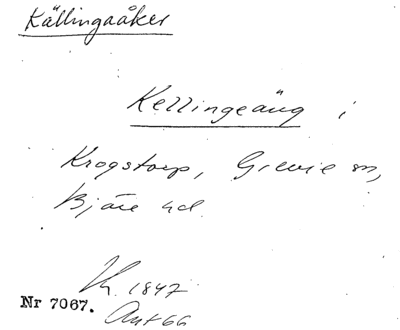 Källingaåker
Kellingeäng i
Krogstorp, Grevie sn,
Bjäre hd.
1847
Nr 7067.